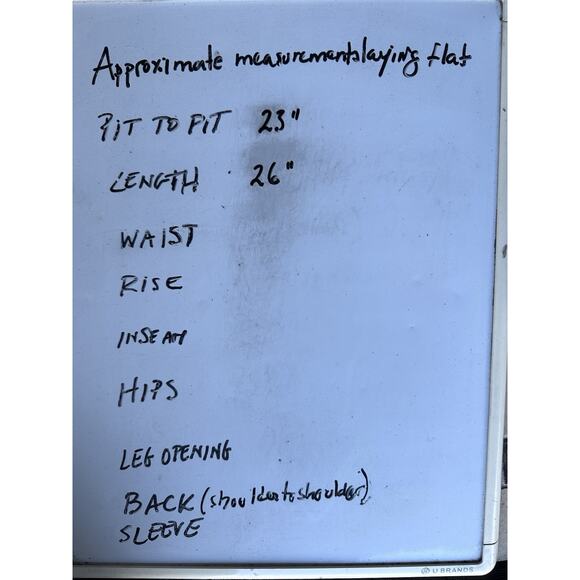 Approximate measurements laying flat
PIT TO PIT 23"
LENGTH 26"
WAIST
RISE
INSEAM
HIPS
LEG OPENING
BACK (shoulder to shoulder)
SLEEVE
U BRANDS